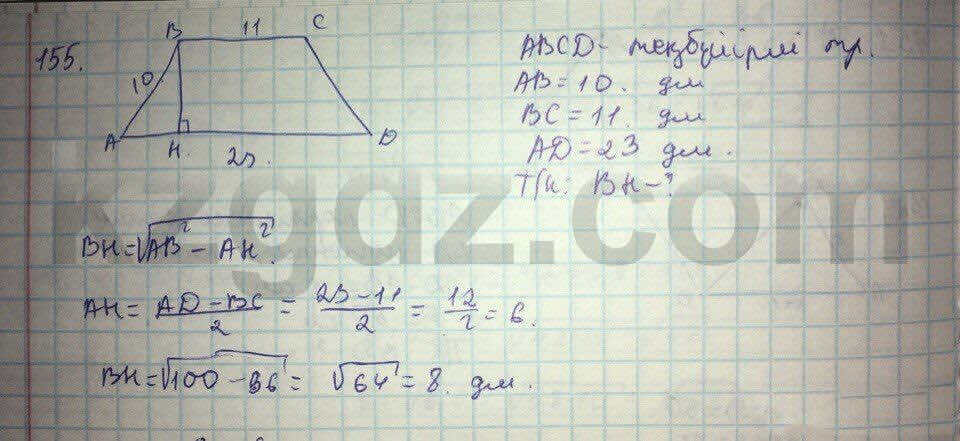 155.
B 11 C
10
A H. D
23.
ABCD - теңбүйірлі тр.
AB = 10. дм
BC = 11. дм
AD = 23 дм.
Т/к: BH - ?
kzgdz.com
BH = √AB² - AH².
AH = AD - BC / 2 = 23 - 11 / 2 = 12 / 2 = 6.
BH = √100 - 36 = √64 = 8. дм.